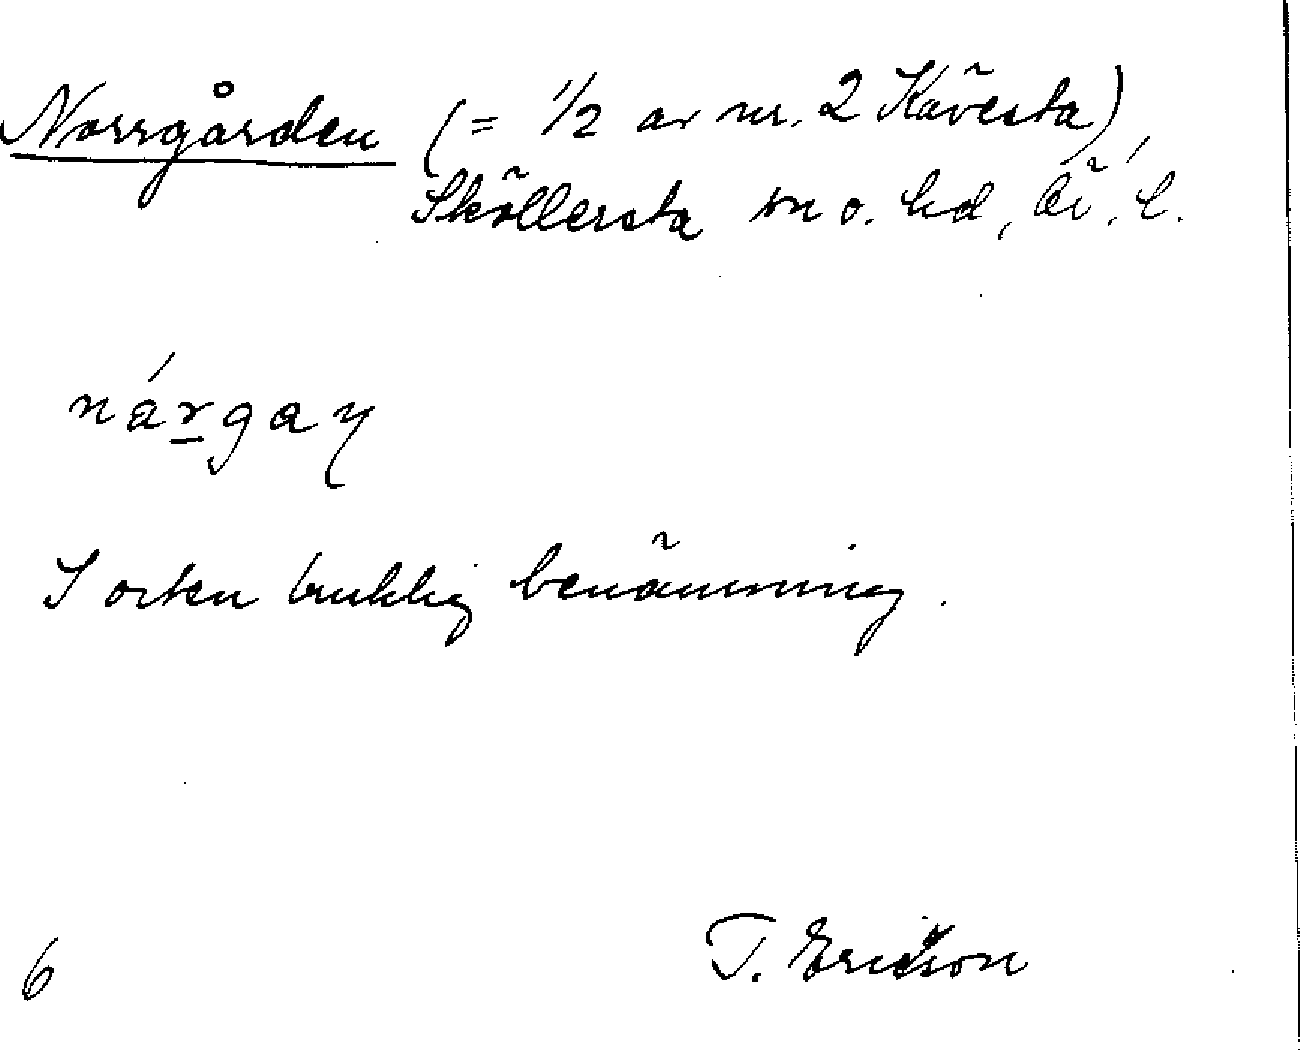 Norrgården (= 1/2 av nr. 2 Kävesta),
Sköllersta sn o. hd, Ör. l.
nárgaŋ
I orten bruklig benämning.
T. Ericson
6